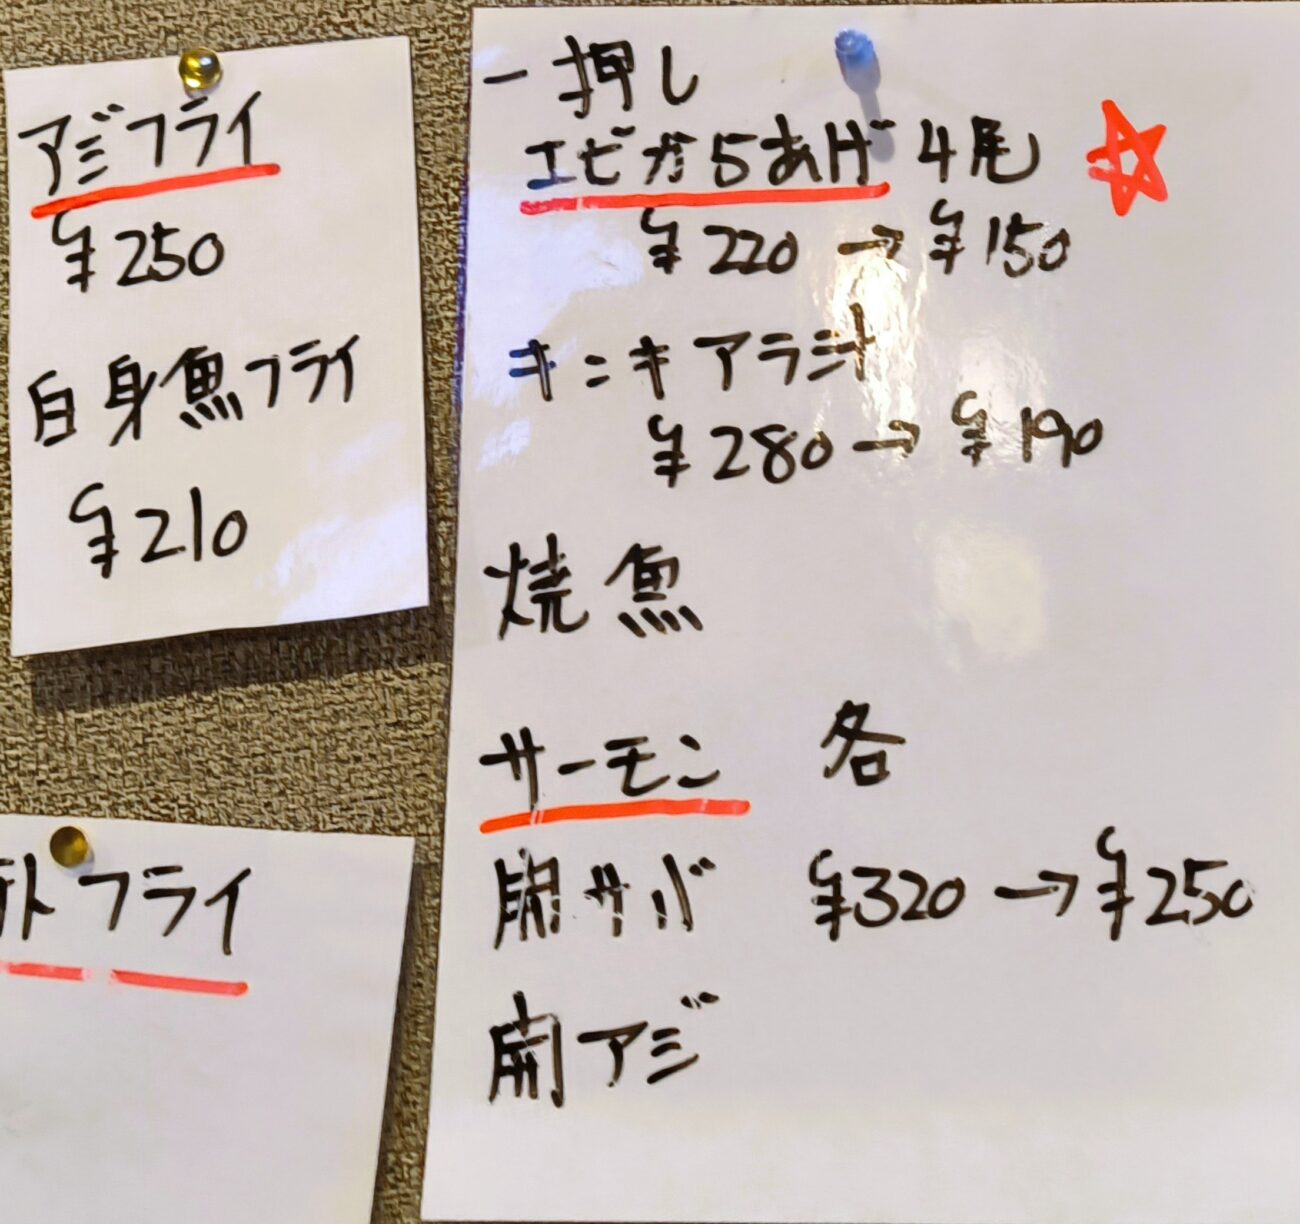 アジフライ
¥250
白身魚フライ
¥210
フライ
一押し
エビガらあげ 4尾
¥220→¥150
キンキアラ汁
¥280→¥190
焼魚
サーモン 各
開サバ ¥320→¥250
開アジ